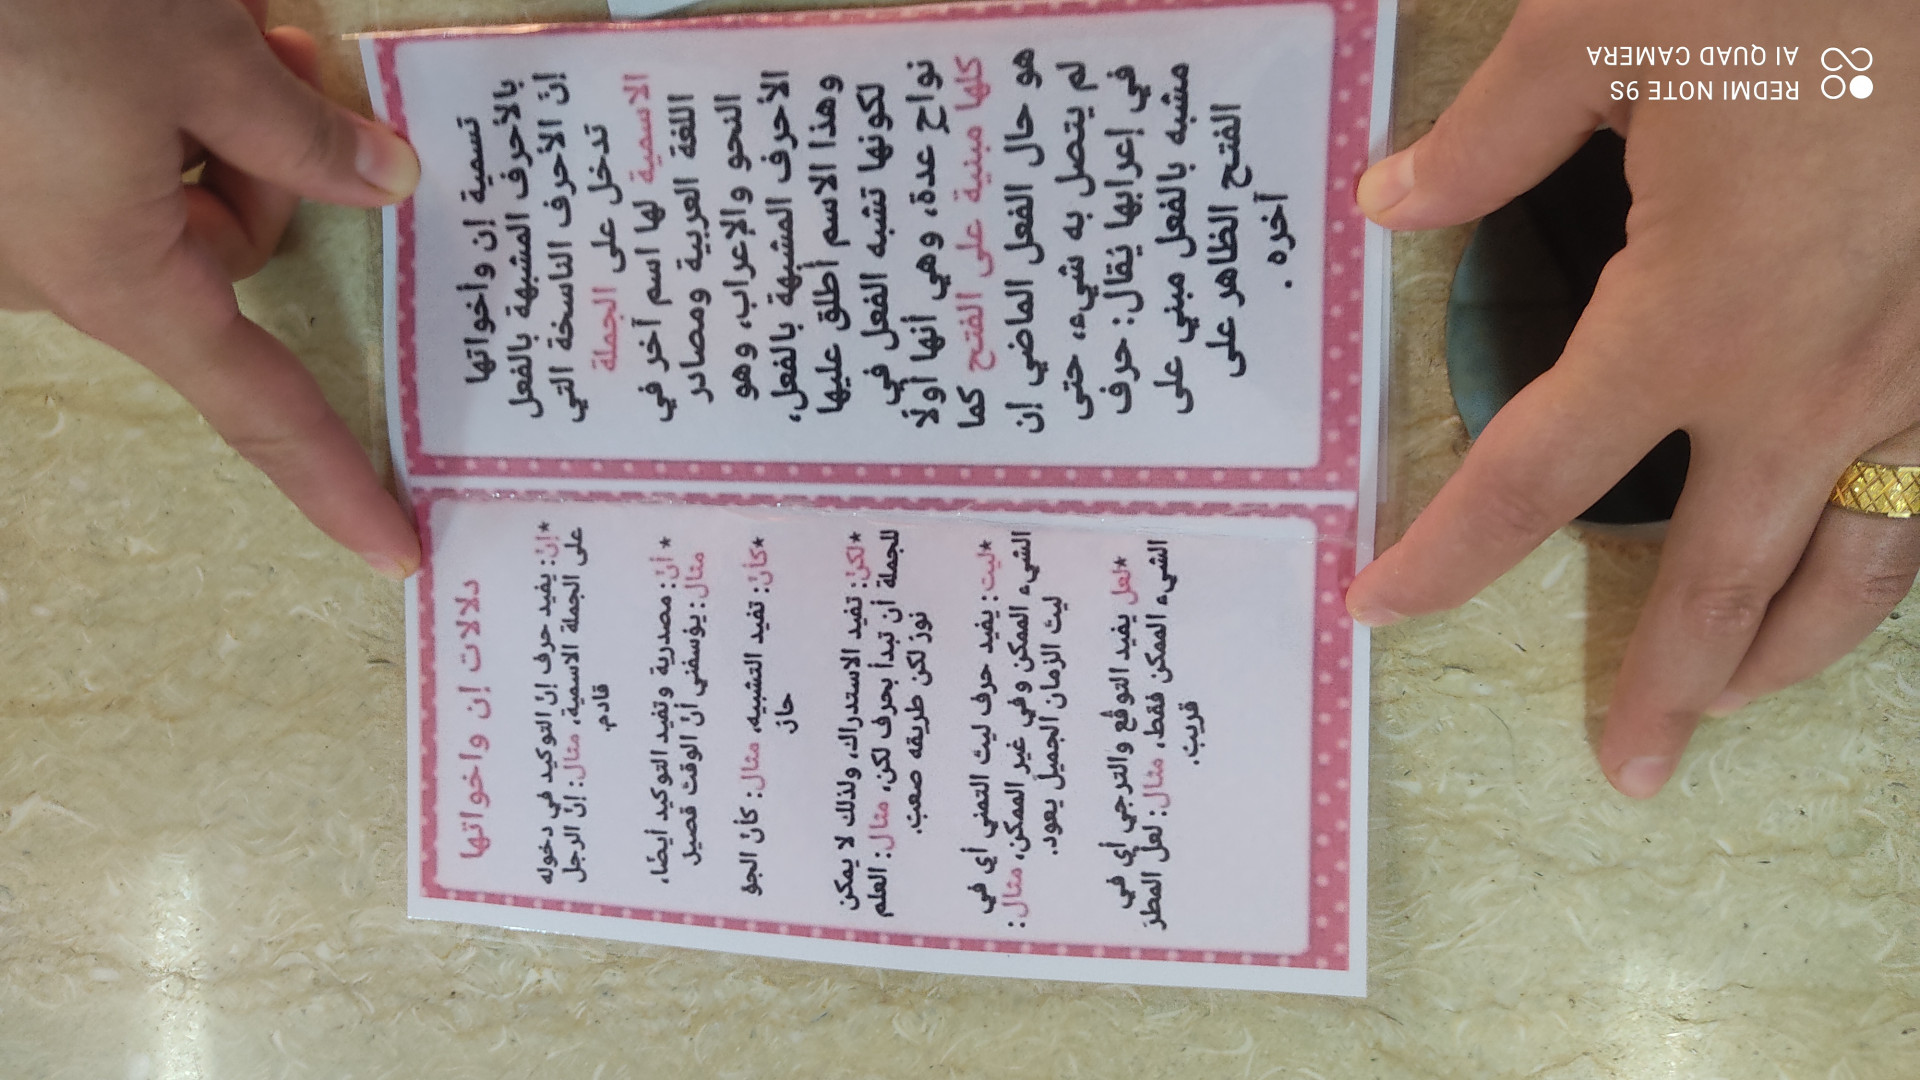 تسمية إن واخواتها
بالأحرف المشبهة بالفعل
إنّ الأحرف الناسخة التي
تدخل على الجملة
الاسمية لها اسم آخر في
اللغة العربية ومصادر
النحو والإعراب، وهو
الأحرف المشبهة بالفعل،
وهذا الاسم أطلق عليها
لكونها تشبه الفعل في
نواحٍ عدة، وهي أنها أولًا
كلها مبنية على الفتح كما
هو حال الفعل الماضي إن
لم يتصل به شيء، حتى
في إعرابها يُقال: حرف
مشبه بالفعل مبني على
الفتح الظاهر على
آخره .
دلالات إن واخواتها
*إنّ: يفيد حرف إنّ التوكيد في دخوله
على الجملة الاسمية، مثال: إنّ الرجل
قادم.
* أنّ: مصدرية وتفيد التوكيد أيضًا،
مثال: يؤسفني أنّ الوقتَ قصيل
*كأنّ: تفيد التشبيه، مثال: كأن الجوَّ
حارٌ
*لكنّ: تفيد الاستدراك، ولذلك لا يمكن
للجملة أن تبدأ بحرف لكن، مثال: العلم
نورٌ لكن طريقه صعبٌ.
*ليت: يفيد حرف ليتَ التمني أي في
الشيء الممكن وفي غير الممكن، مثال:
ليتَ الزمانَ الجميلَ يعود.
*لعل يفيد التوقع والترجي أي في
الشيء الممكن فقط، مثال: لعل المطرَ
قريبٌ.
REDMI NOTE 9S
AI QUAD CAMERA